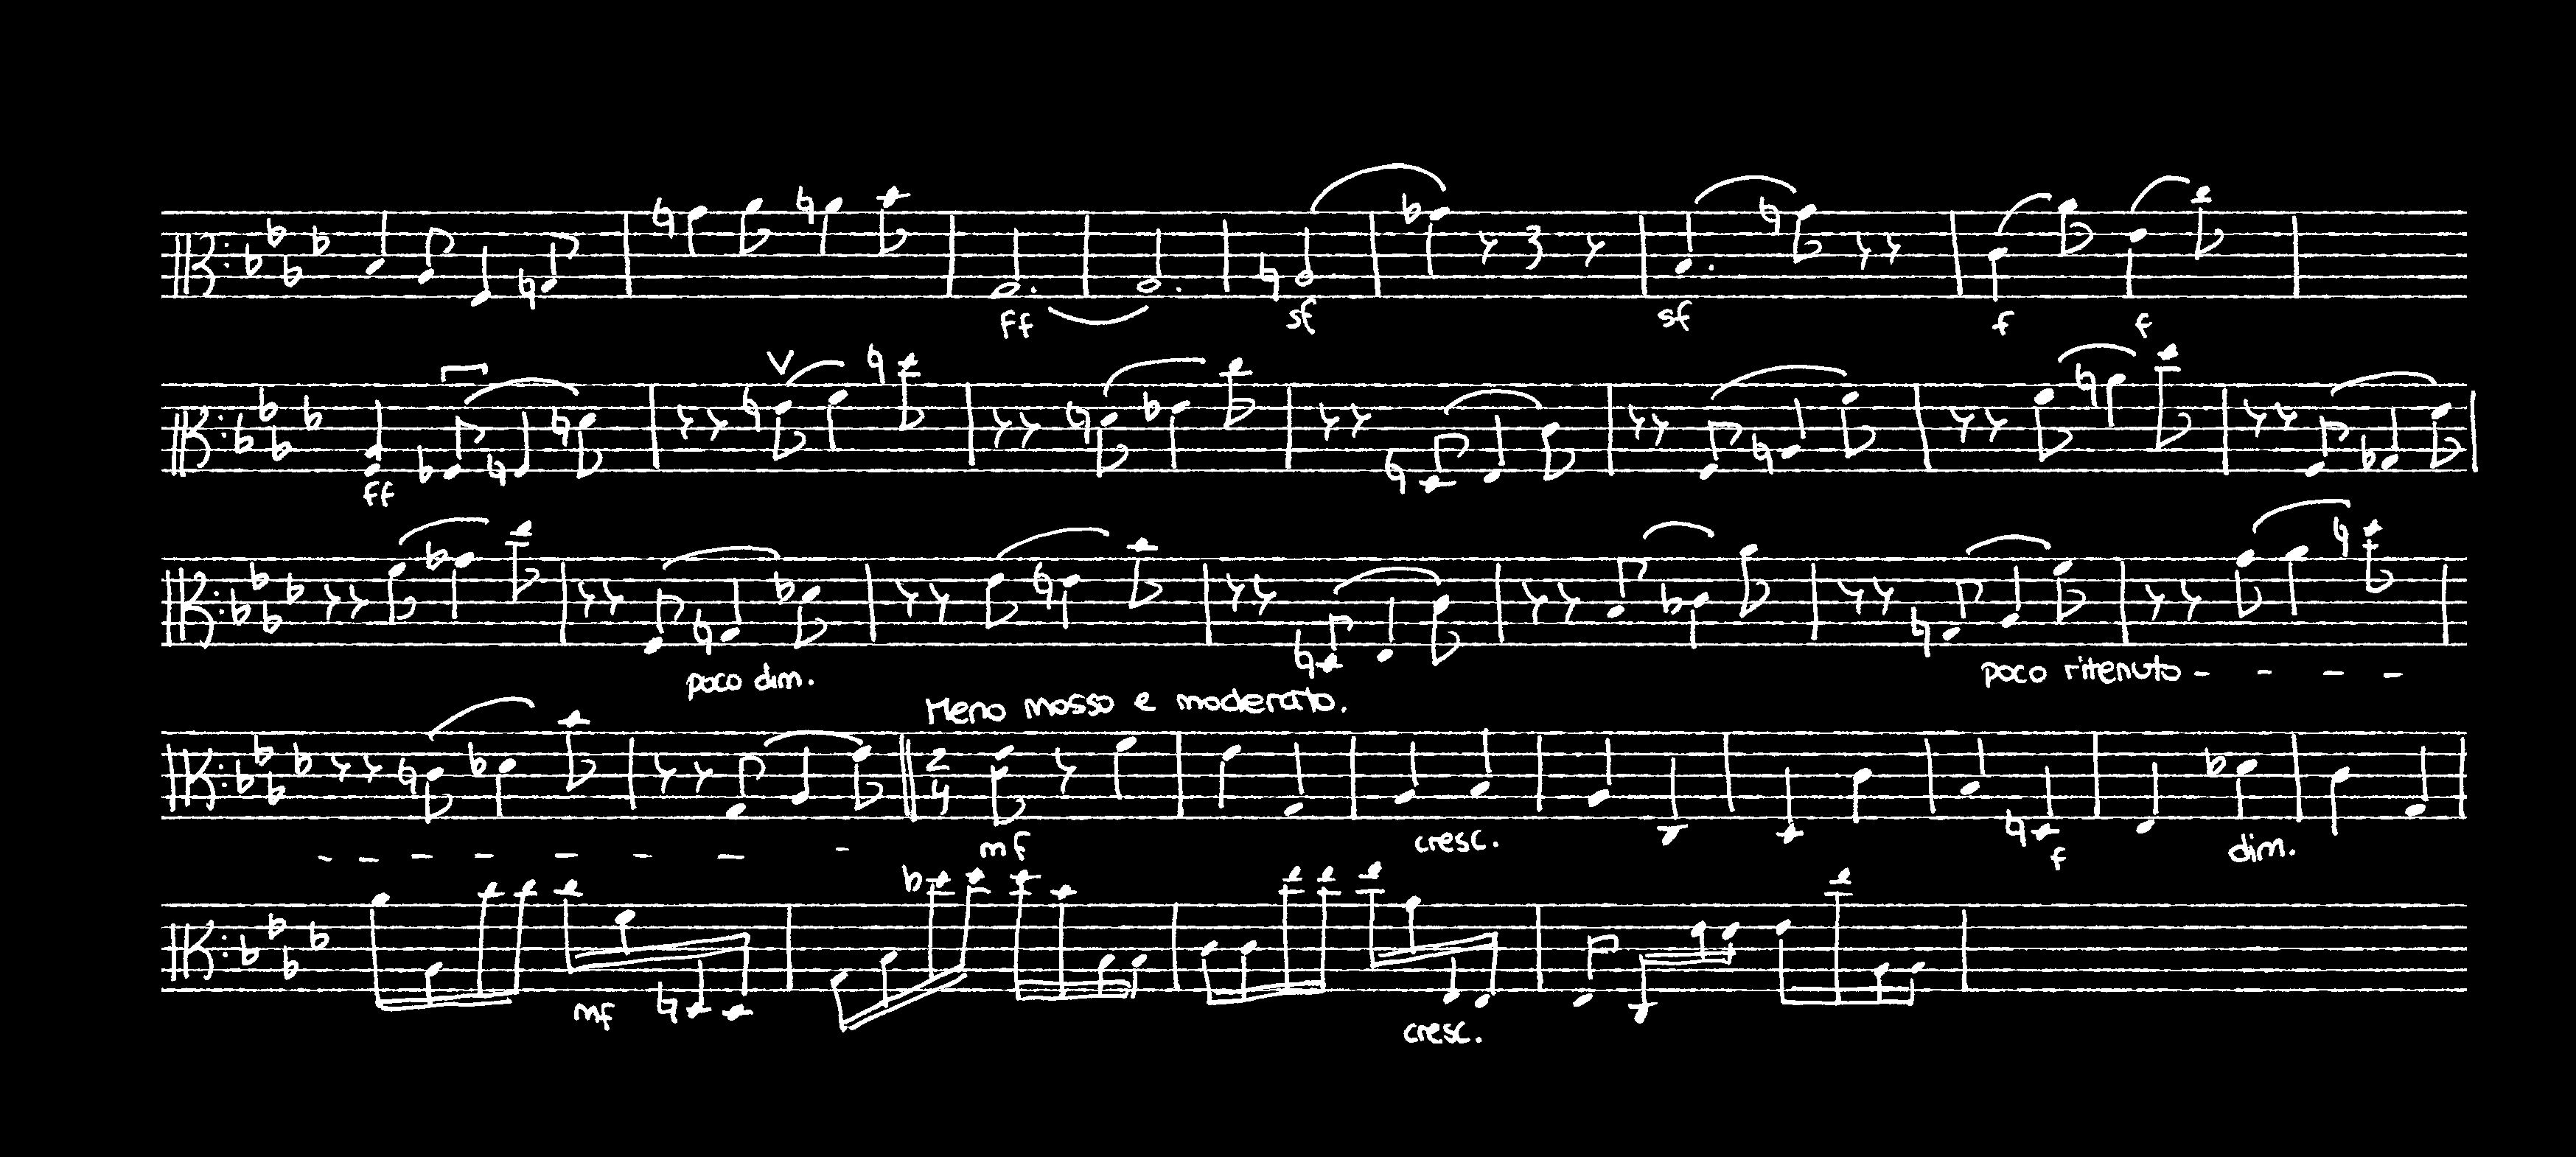 ff sf sf f f
V
ff
poco dim. poco ritenuto - - - -
Meno mosso e moderato.
2 4
mf cresc. f dim.
mf cresc.